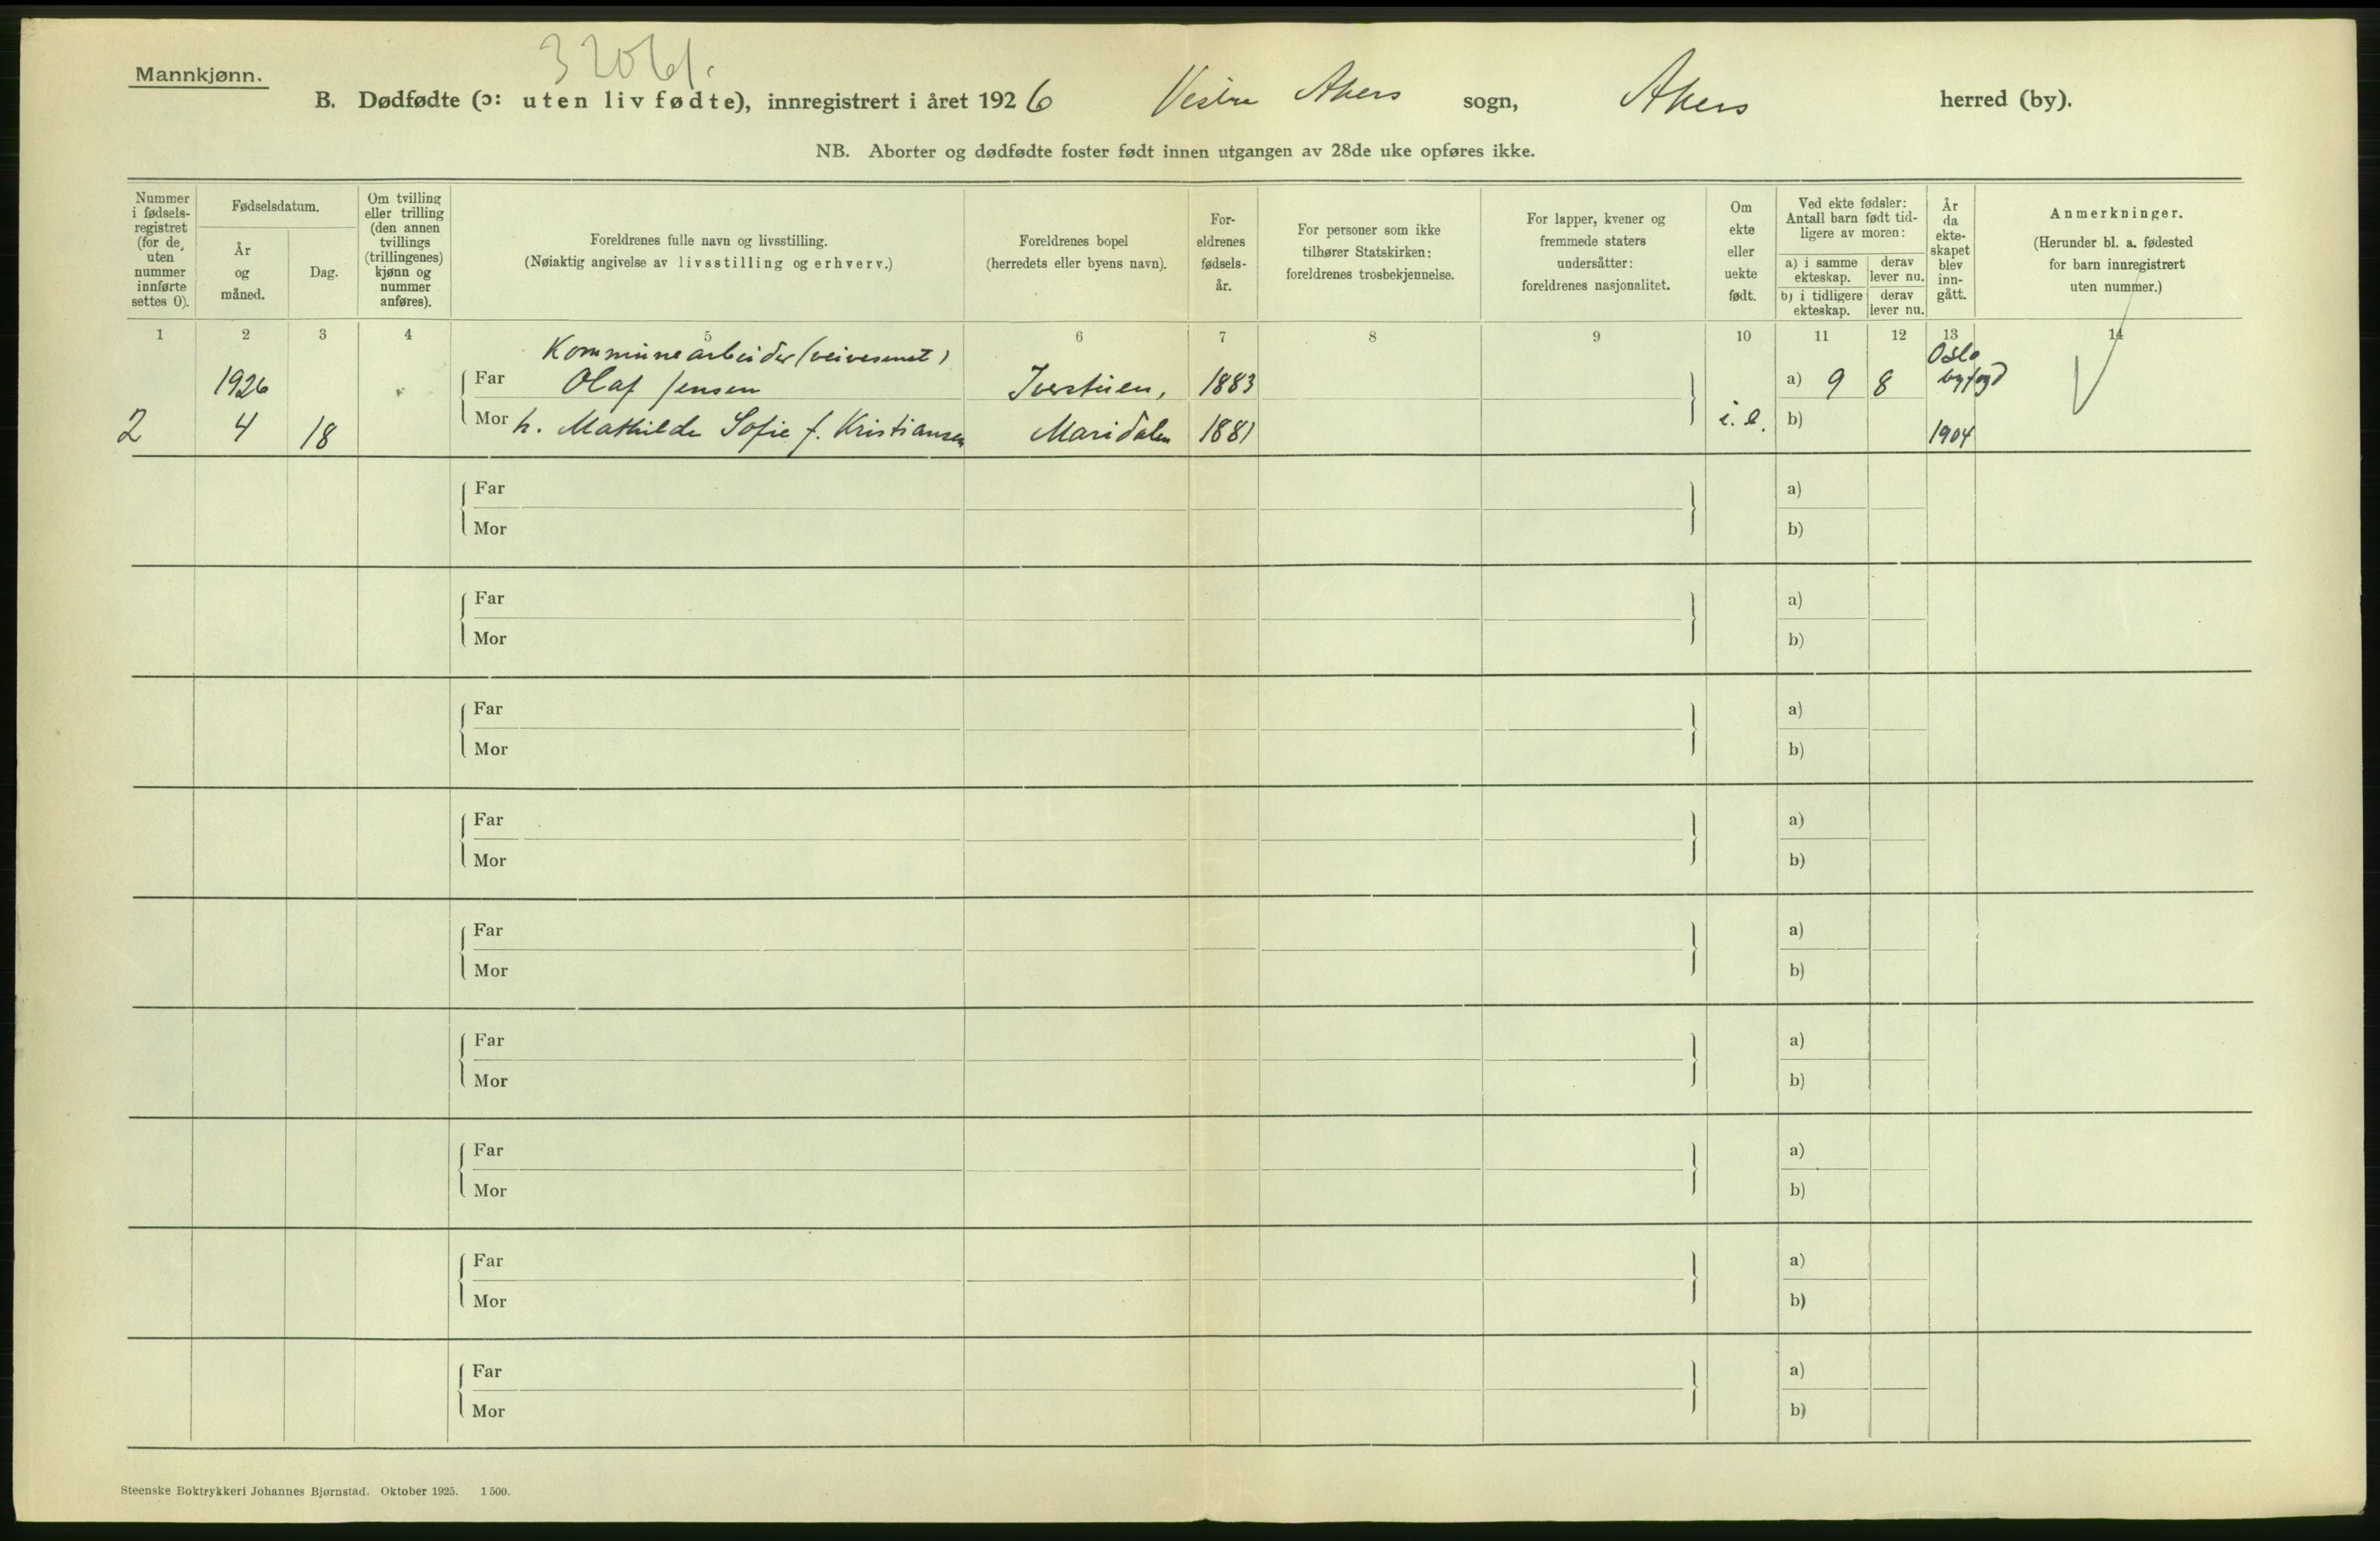 Mannkjønn.
B. Dødfødte (ɔ: uten liv fødte), innregistrert i året 1926 Vestre Akers sogn, Akers herred (by).
NB. Aborter og dødfødte foster født innen utgangen av 28de uke opføres ikke.
Nummer
i fødsels-
registret
(for de
uten
nummer
innførte
settes 0).
Fødselsdatum.
År
og
måned.
Dag.
Om tvilling
eller trilling
(den annen
tvillings
(trillingenes)
kjønn og
nummer
anføres).
Foreldrenes fulle navn og livsstilling.
(Nøiaktig angivelse av livsstilling og erhverv.)
Foreldrenes bopel
(herredets eller byens navn).
For-
eldrenes
fødsels-
år.
For personer som ikke
tilhører Statskirken:
foreldrenes trosbekjennelse.
For lapper, kvener og
fremmede staters
undersåtter:
foreldrenes nasjonalitet.
Om
ekte
eller
uekte
født.
Ved ekte fødsler:
Antall barn født tid-
ligere av moren:
a) i samme
ekteskap.
derav
lever nu.
b) i tidligere
ekteskap.
derav
lever nu.
År
da
ekte-
skapet
blev
inn-
gått.
Anmerkninger.
(Herunder bl. a. fødested
for barn innregistrert
uten nummer.)
1 2 3 4 5 6 7 8 9 10 11 12 13 14
Kommunearbeider (veivesenet) Oslo
1926 Far Olaf Jensen Iverstuen, 1883 a) 9 8 byfogd
2 4 18 Mor h. Mathilde Sofie f. Kristiansen Maridalen 1881 i. e. b) 1904
Far a)
Mor b)
Far a)
Mor b)
Far a)
Mor b)
Far a)
Mor b)
Far a)
Mor b)
Far a)
Mor b)
Far a)
Mor b)
Far a)
Mor b)
Far a)
Mor b)
Steenske Boktrykkeri Johannes Bjørnstad. Oktober 1925. 1 500.